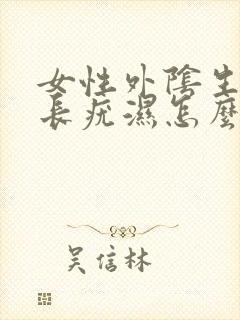 女性外陰生
長疣濕怎麼
吳信林